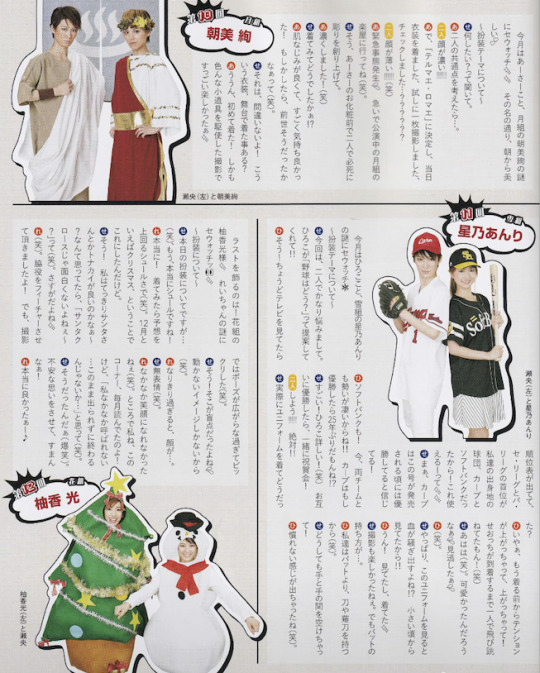 第10回 月組
朝美 絢
今月はあーさーこと、月組の朝美絢の謎
にセウォッチ。その名の通り、朝から美
しい♡
〜扮装テーマについて〜
せ 何したい?って聞いて。
あ 二人の共通点を考えたら…。
二人 顔が濃い!!!!
あ で、「テルマエ・ロマエ」に決定し、当日
衣装を着ました。試しに一枚撮影しました。
チェックしました…?????
二人 顔が薄い!!!!(笑)
あ 緊急事態発生。急いで公演中の月組の
楽屋に行ってね(笑)。
せ そう、あーさーのお化粧前で二人で必死に
彫りを創り上げて。
あ 濃くしました!(笑)
せ 着てみてどうでしたかぁ!?
あ 肌なじみが良くて、すごく気持ち良かっ
た!もしかしたら、前世そうだったか
なぁって(笑)。
せ それは、間違いないよ!こう
いう衣装、舞台で着た事ある?
あ ううん、初めて着た!しかも
色んな小道具を駆使した撮影で
すっごい楽しかったぁ。
瀬央(左)と朝美絢
第11回 雪組
星乃あんり
今月はひろここと、雪組の星乃あんり
の謎にセウォッチ
〜扮装テーマについて〜
せ 今回は、二人でかなり悩みました。
ひろこが、「野球はどう?」って提案して
くれて!!
ひ そう!ちょうどテレビを見てたら
順位表が出てて、
セ・リーグとパ・
リーグの首位が
私達の出身地の
球団、カープと
ソフトバンクだっ
たから!これ使
えるーって。
せ まぁ、カープ
はこの号が発売
される頃には優
勝してると信じ
てる!
ひ ソフトバンクも!
せ も勢いが凄いからね!!カープはもし
優勝したら25年ぶりだもんね!?
ひ すごい!ひろこ詳しい!(笑)お互
いに優勝したら、一緒に祝賀会!
二人 しよう!!!!絶対!!
せ 実際にユニフォームを着てどうだっ
た?
ひ いやぁ、もう着る前からテンション
が上がっちゃって、上がっちゃって!
せおっちが到着するまで一人で飛び跳
ねてたもん!(笑)
せ あはは(笑)。可愛かったんだろう
なぁ。見逃したぁ。
ひ (笑)。
せ やっぱり、このユニフォームを見ると
血が騒ぎ出すよね!?小さい頃から
見てたから!!
ひ うん!見てたし、着てた。
せ 撮影も楽しかったねぇ。でもバットの
持ち方が…。
ひ 私達はバットより、刀や薙刀を持つ
から(笑)。
せ どうしても手と手の間を空けちゃっ
て(笑)。
ひ 慣れない感じが出ちゃったね(笑)。
瀬央(左)と星乃あんり
第12回 花組
柚香 光
ラストを飾るのは!花組の
柚香光様。れいちゃんの謎に
セウォッチ
〜扮装について〜
せ 本日の扮装についてですが…
(笑)。もう、本当にシュールですね!
れ 本当に!着てみたら予想を
上回るシュールさで(笑)。12月と
いえばクリスマス、ということで
これにしたんだけど。
せ そう!私はてっきりサンタさ
んとかトナカイが良いのかなぁ〜
?なんて思ってたら、「サンタク
ロースじゃ面白くないよねぇ〜
?」って(笑)。さすがだよね。
れ (笑)。脇役をフィーチャーさせ
て頂きましたよ!でも、撮影
ではポーズが広がらな過ぎてビッ
クリした(笑)。
せ そう!そこが盲点だったよね。
動かないイメージしかないから。
れ なりきり過ぎると、顔が…。
せ 無表情(笑)。
れ なかなか笑顔になれなかった
ねぇ(笑)。ところで私ね、この
コーナー、毎月読んでたのよ!
けど、「私なかなか呼ばれない
…このまま出られずに終わる
んじゃないか…」と思って(笑)。
せ そうだったんだぁ(爆笑)。
不安な思いをさせて、すまん
なぁ!
れ 本当に良かったぁー♪
柚香光(左)と瀬央